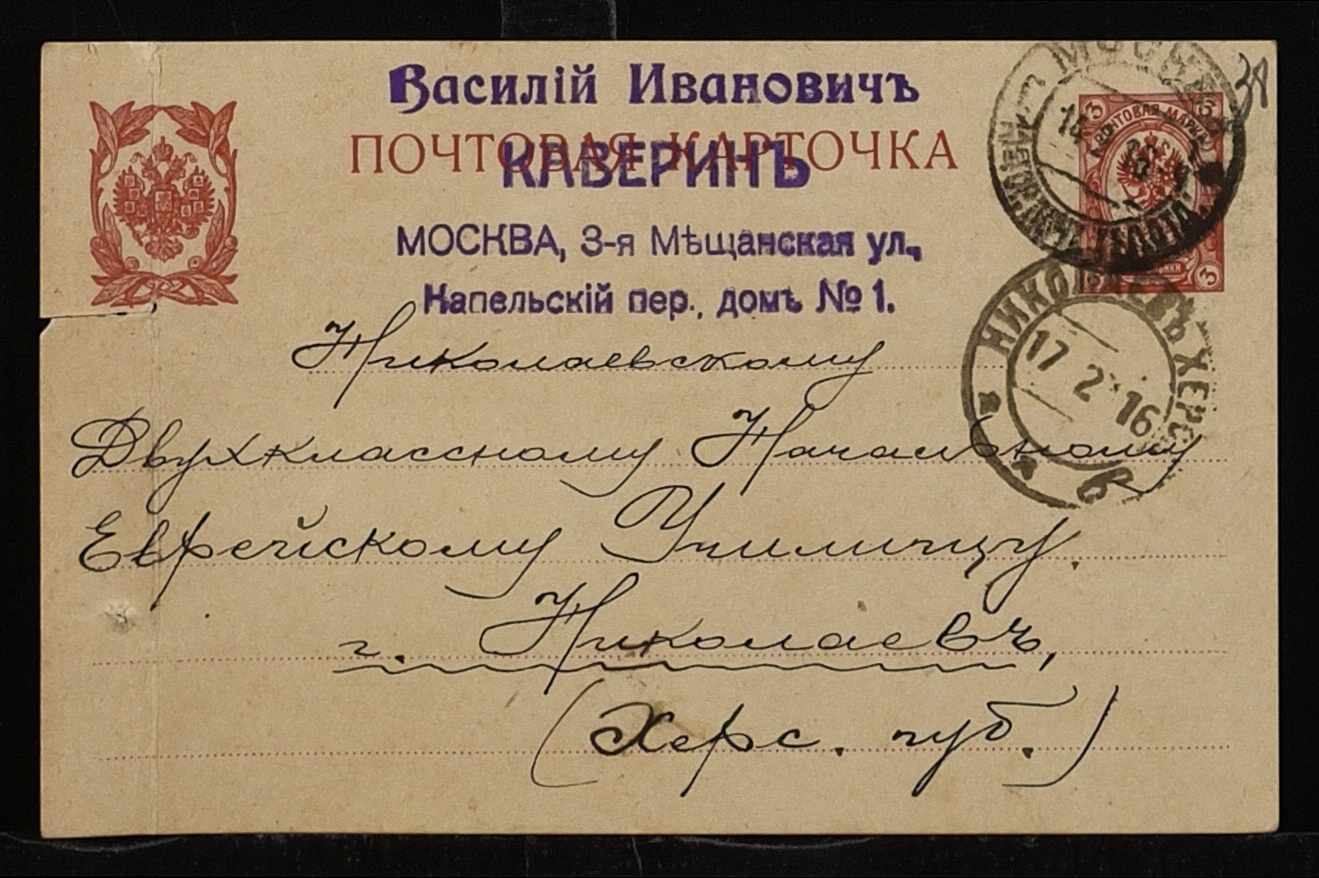 Василій Ивановичъ
ПОЧТОВАЯ КАРТОЧКА
КАВЕРИНЪ
МОСКВА, 3-я Мѣщанская ул.,
Напельскій пер., домъ № 1.
МОСКВА
ПОЧТОВАЯ МАРКА
3 3
3
34
НИКОЛАЕВЪ ХЕРС
17 2 16
Николаевскому
Двухклассному Начальному
Еврейскому Училищу.
г. Николаевъ,
(Херс. губ.)